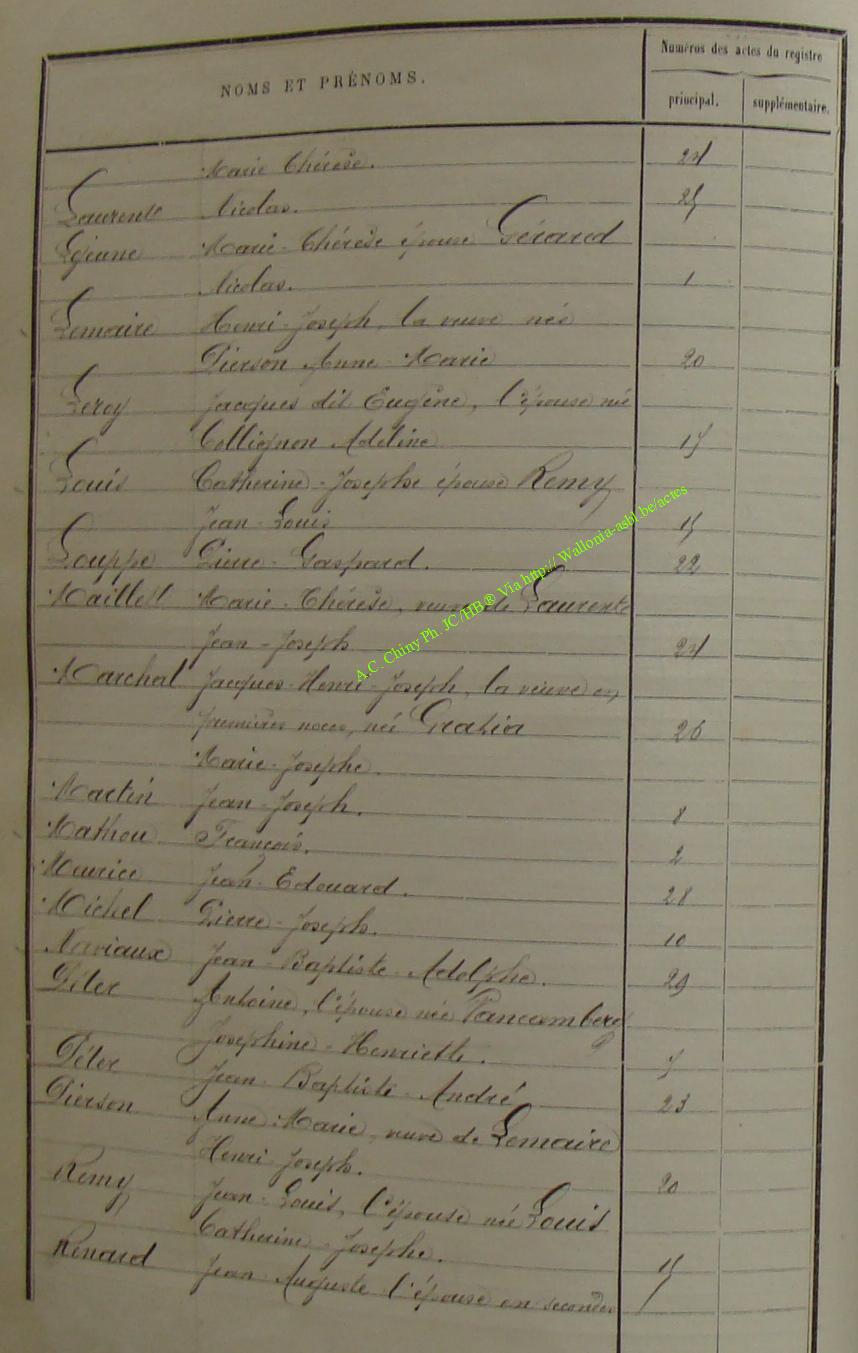 NOMS ET PRÉNOMS.
Numéros des actes du registre
principal. supplémentaire.
Marie Thérèse. 24
Laurent Nicolas. 25
Lejeune Marie-Thérèse épouse Gérard
Nicolas. 1
Lemaire Henri-Joseph, la veuve née
Pierson Anne-Marie 20
Leroy Jacques dit Eugène, l'épouse née
Collignon Adeline 17
Louis Catherine-Josephe épouse Remy
Jean-Louis 15
Louppe Pierre-Gaspard. 22
Maillet Marie-Thérèse, veuve de Laurent
Jean-Joseph 24
Marchal Jacques-Henri-Joseph, la veuve en
premières noces, née Gratia
Marie-Josephe. 26
Martin Jean-Joseph. 8
Mathou François. 2
Maurice Jean-Edouard. 28
Michel Pierre-Joseph. 10
Naviaux Jean-Baptiste-Adolphe. 29
Péter Antoine, l'épouse née Vancamberg
Josephine-Henriette. 5
Péter Jean-Baptiste-André 23
Pierson Anne-Marie, veuve de Lemaire
Henri Joseph. 20
Remy Jean-Louis, l'épouse née Louis
Catherine-Josephe. 15
Renard Jean Auguste l'épouse en secondes
A.C. Chiny Ph. JC/HB® Via http:// Wallonia-asbl.be/actes